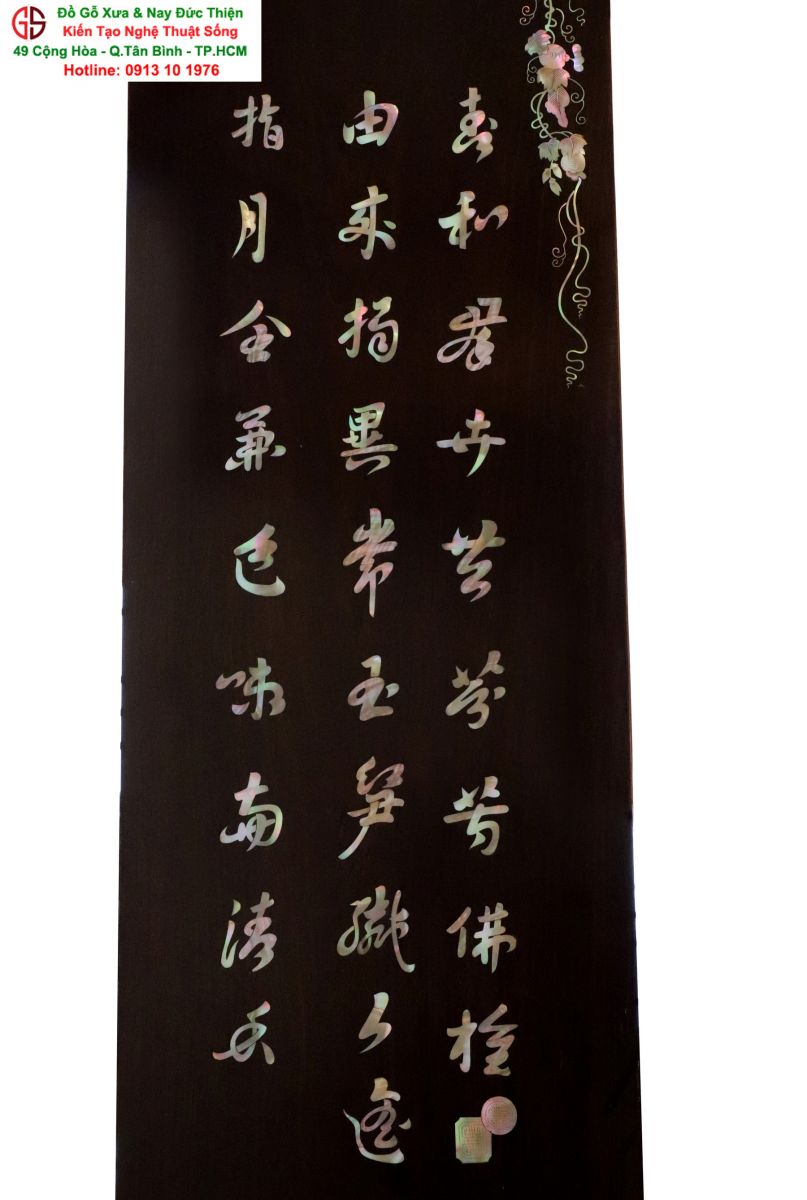 Đồ Gỗ Xưa & Nay Đức Thiện
Kiến Tạo Nghệ Thuật Sống
49 Cộng Hòa - Q.Tân Bình - TP.HCM
Hotline: 0913 10 1976
春和羣卉共芬芳佛
由來獨異常玉笋纖々遙
指月全兼色味兩清香